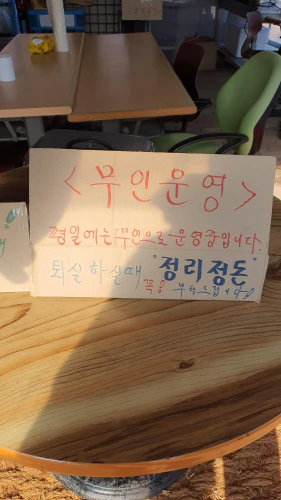 <무인운영>
평일에는 무인으로 운영중입니다.
퇴실하실때 "정리정돈"
꼭! 부탁드립니다